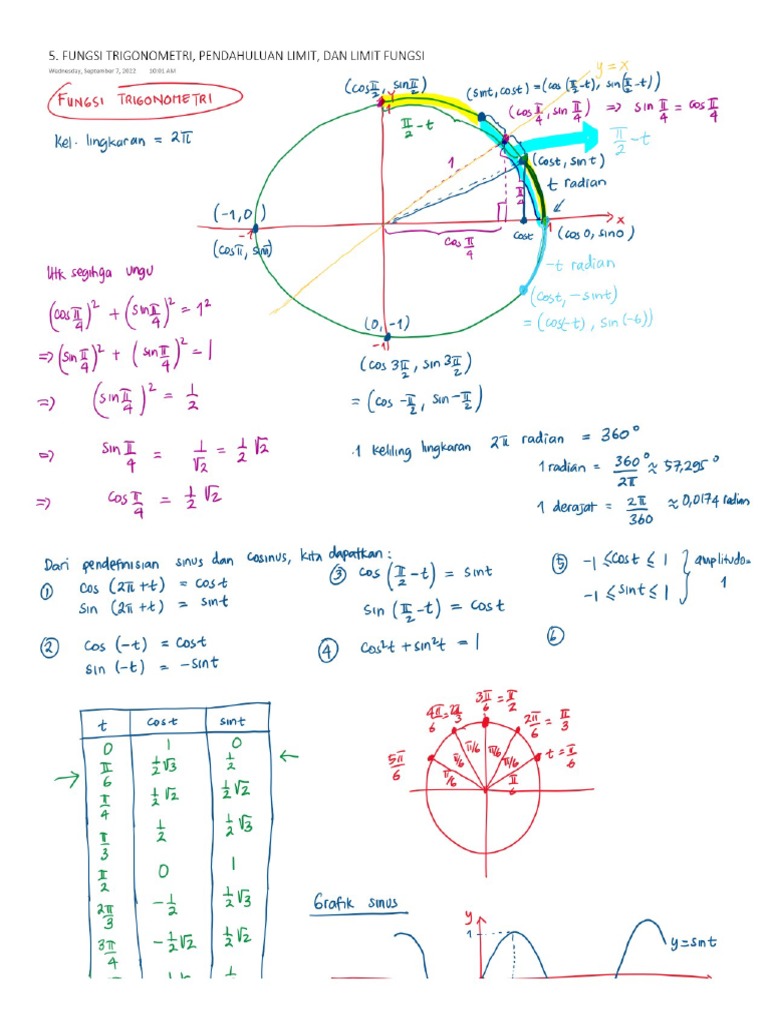 5. FUNGSI TRIGONOMETRI, PENDAHULUAN LIMIT, DAN LIMIT FUNGSI
Wednesday, September 7, 2022 10:01 AM
FUNGSI TRIGONOMETRI
Kel. lingkaran = 2π
y = x
(cos π/2, sin π/2)
(sin t, cos t) = (cos (π/2 - t), sin (π/2 - t))
(cos π/4, sin π/4) => sin π/4 = cos π/4
π/2 - t
π/2 - t
1
(cos t, sin t)
t radian
(-1, 0)
-1
1
x
cos t
(cos 0, sin 0)
cos π/4
-t radian
(cos t, -sin t)
= (cos(-t), sin(-t))
(0, -1)
-1
(cos 3π/2, sin 3π/2)
= (cos -π/2, sin -π/2)
Utk segitiga ungu
(cos π/4)² + (sin π/4)² = 1²
=> (sin π/4)² + (sin π/4)² = 1
=> (sin π/4)² = 1/2
=> sin π/4 = 1/√2 = 1/2 √2
=> cos π/4 = 1/2 √2
.1 keliling lingkaran 2π radian = 360°
1 radian = 360°/2π ≈ 57,295°
1 derajat = 2π/360 ≈ 0,0174 radian
Dari pendefinisian sinus dan cosinus, kita dapatkan:
① cos (2π + t) = cos t
sin (2π + t) = sin t
② cos (-t) = cos t
sin (-t) = -sin t
③ cos (π/2 - t) = sin t
sin (π/2 - t) = cos t
④ cos²t + sin²t = 1
⑤ -1 ≤ cos t ≤ 1
-1 ≤ sin t ≤ 1
amplitudo = 1
⑥
t cos t sin t
0 1 0
π/6 1/2 √3 1/2
π/4 1/2 √2 1/2 √2
π/3 1/2 1/2 √3
π/2 0 1
2π/3 -1/2 1/2 √3
3π/4 -1/2 √2 1/2 √2
3π/6 = π/2
4π/6 = 2π/3
2π/6 = π/3
5π/6
t = π/6
π/6 π/6 π/6 π/6 π/6 π/6
Grafik sinus
y
1
y = sin t